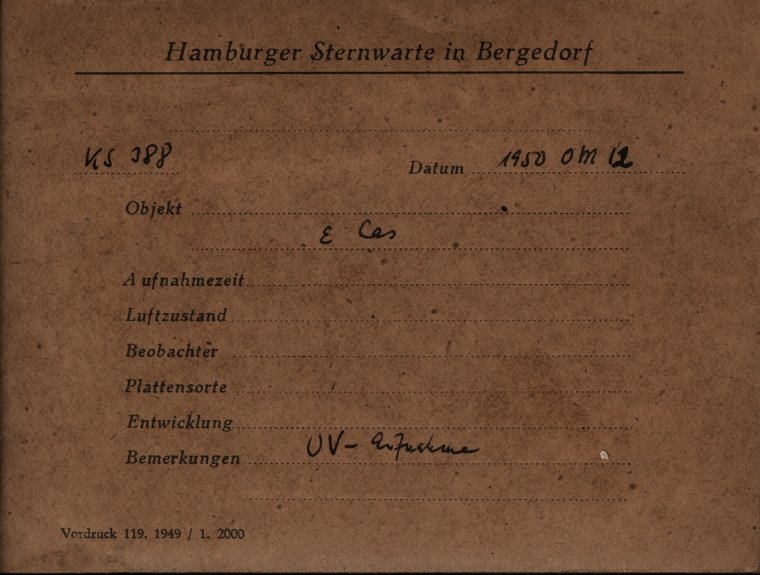 Hamburger Sternwarte in Bergedorf
KS 388 Datum 1950 Okt 12
Objekt
ε Cas
Aufnahmezeit
Luftzustand
Beobachter
Plattensorte
Entwicklung
Bemerkungen UV-Aufnahme
Vordruck 119. 1949 / 1. 2000